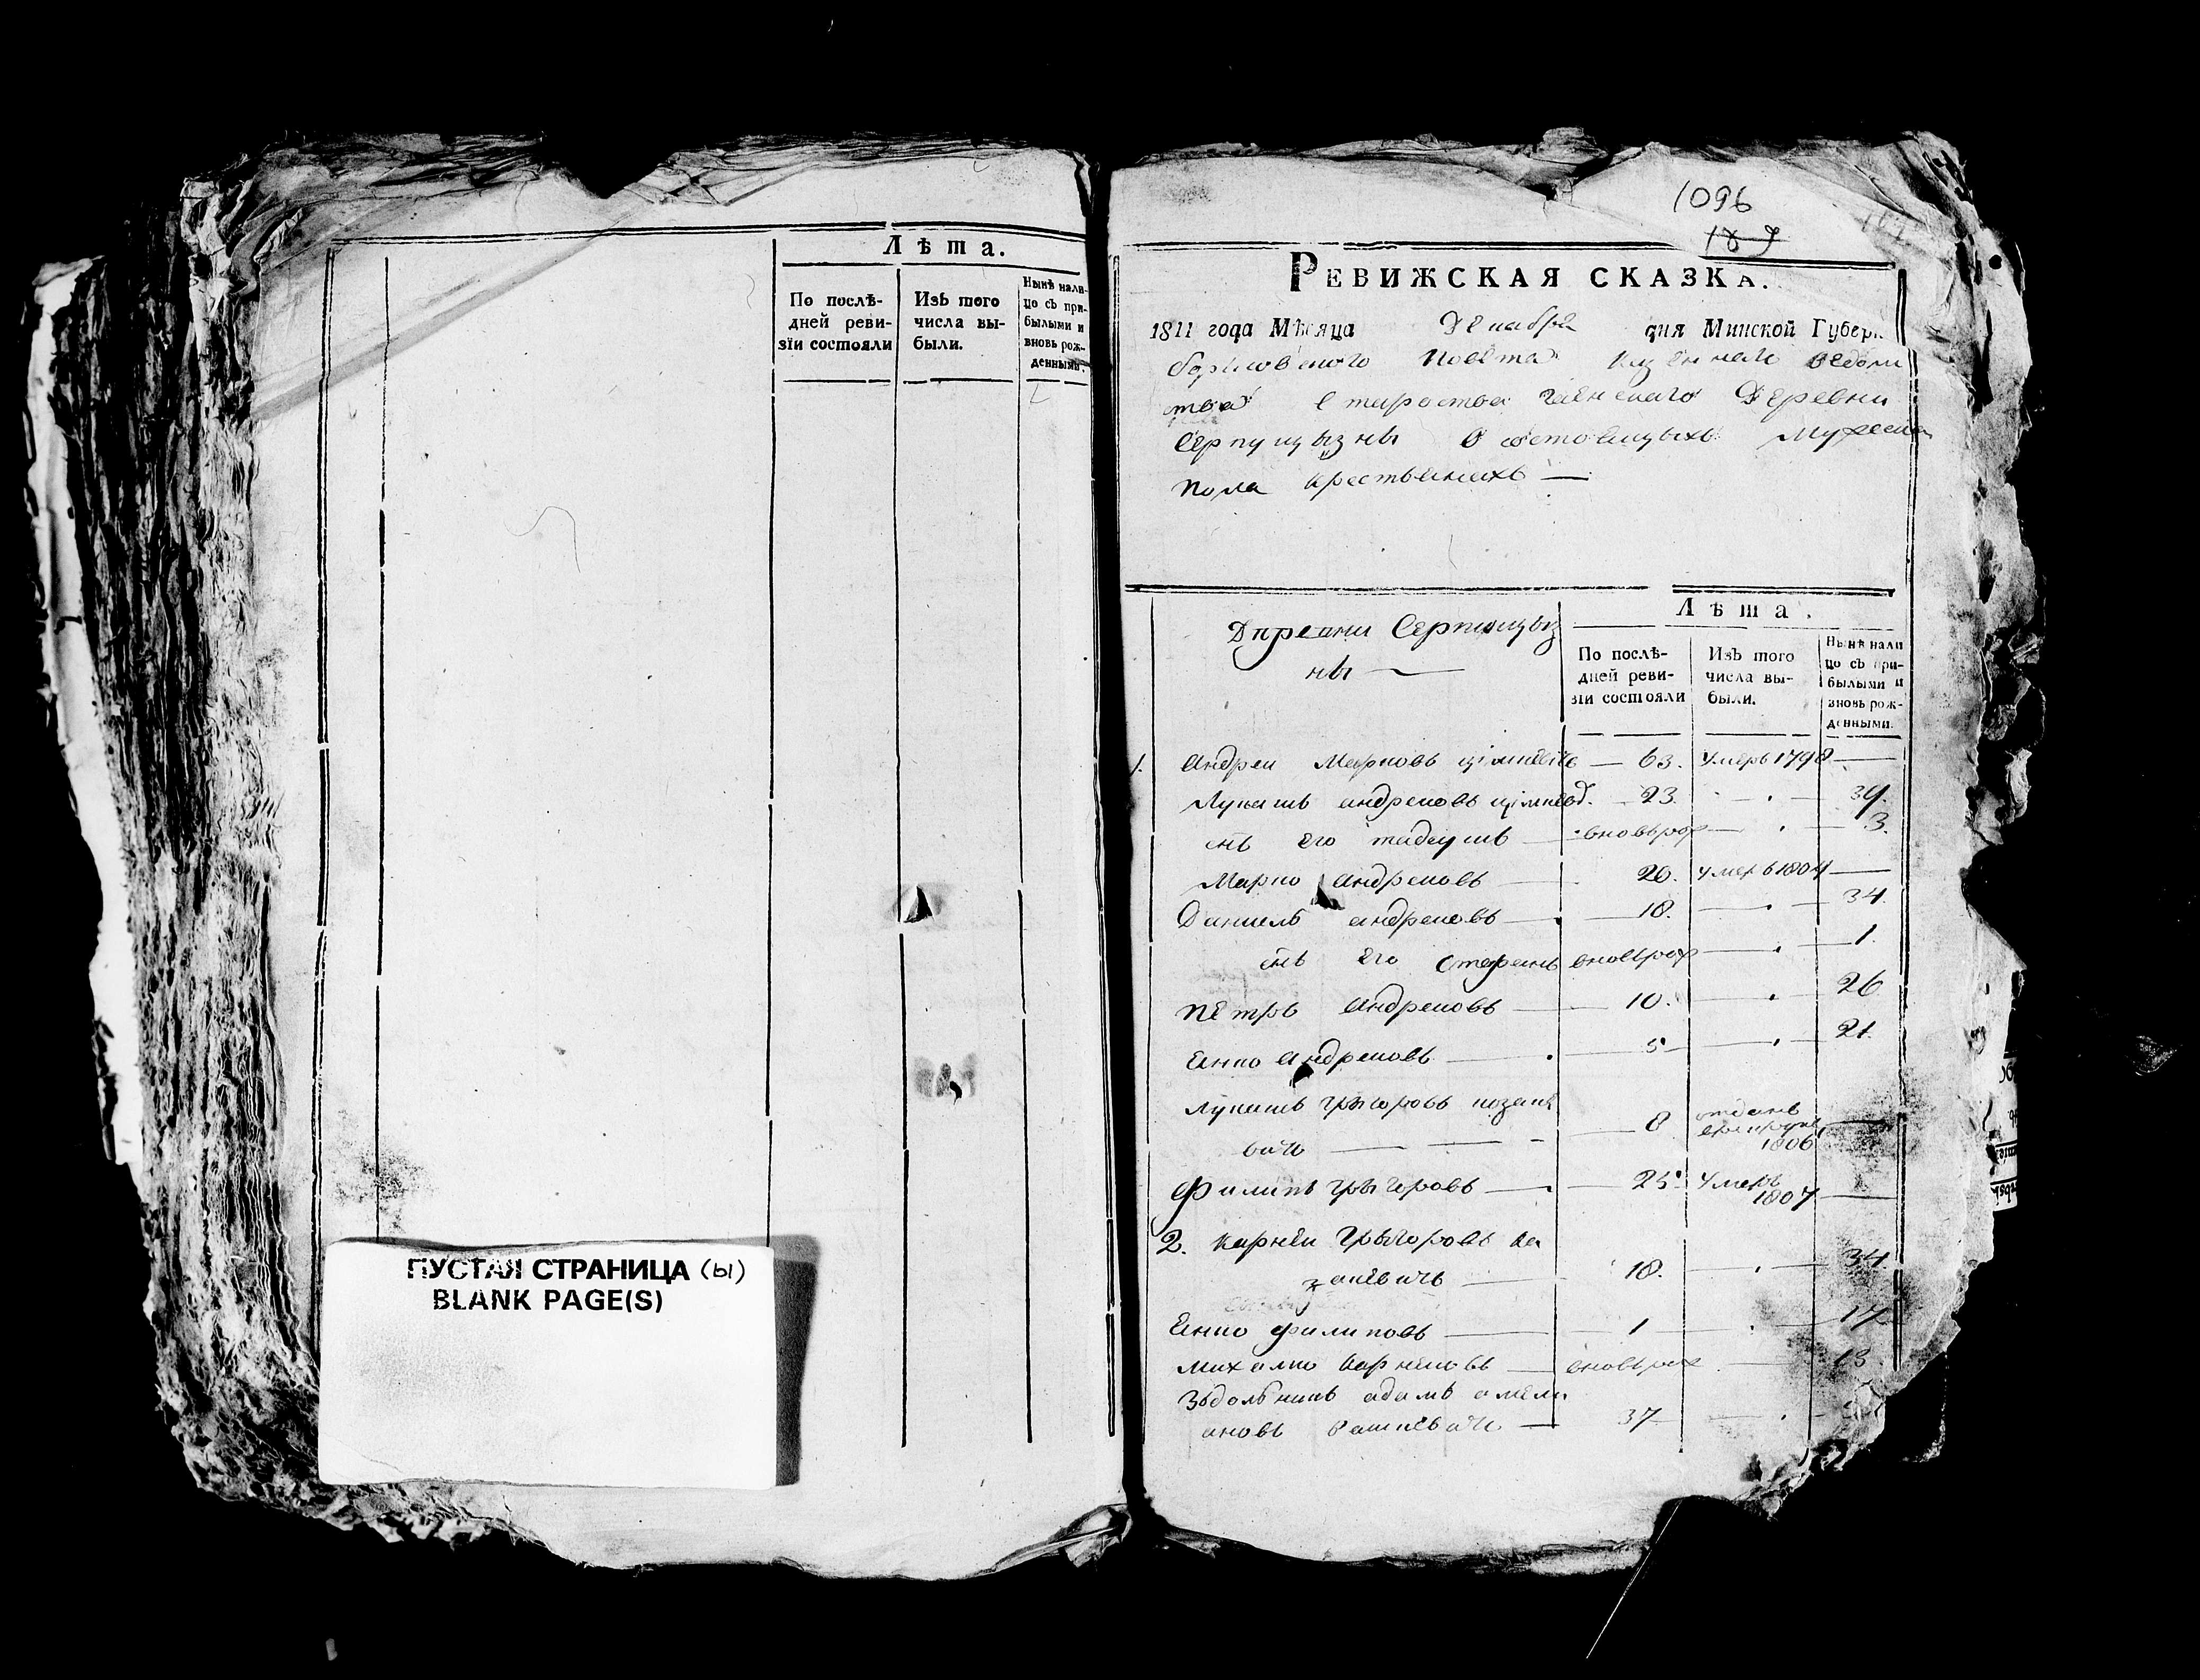 Лѣта.
По послѣ-
дней реви-
зїи состояли
Изъ того
числа вы-
были.
Нынѣ нали-
цо съ при-
былыми и
вновь рож-
денными.
ПУСТАЯ СТРАНИЦА (Ы)
BLANK PAGE(S)
1096
187
РЕВИЖСКАЯ СКАЗКА.
1811 года Мѣсяца Декабра дня Минской Губерн
борисовского повѣта казенной ведом
тва староства гаенского Деревни
Серпуцызны о состоящыхъ мужеска
пола крестьянехъ —
Деревни Серпуцыз
ны —
Лѣта.
По послѣ-
дней реви-
зіи состояли
Изъ того
числа вы-
были.
Нынѣ нали
цо съ при-
былыми и
вновь рож-
денными.
1. андреи Марковъ — 63. умеръ 1798 —
Лукашъ андреовъ 23. 39.
снъ его тадеушъ — вновърож — 3.
Марко андреовъ — 20. умеръ 1804 —
Даниель андреовъ — 18. — 34.
снъ его стефанъ вновърож — 1.
Петръ андреовъ — 10. — 26
Янко андреовъ — 5 — 21
Лукашъ грыгоровъ козаке
вичъ — 8 отданъ
1806 —
Филипъ грыгоровъ — 25 умеръ
1807 —
2. карнеи грыгоровъ ка
закевичъ — 18. — 34
Янко филиповъ — 1 — 17
михалко карнеовъ — вновърож — 13
адамъ амели
ановъ — 37 —